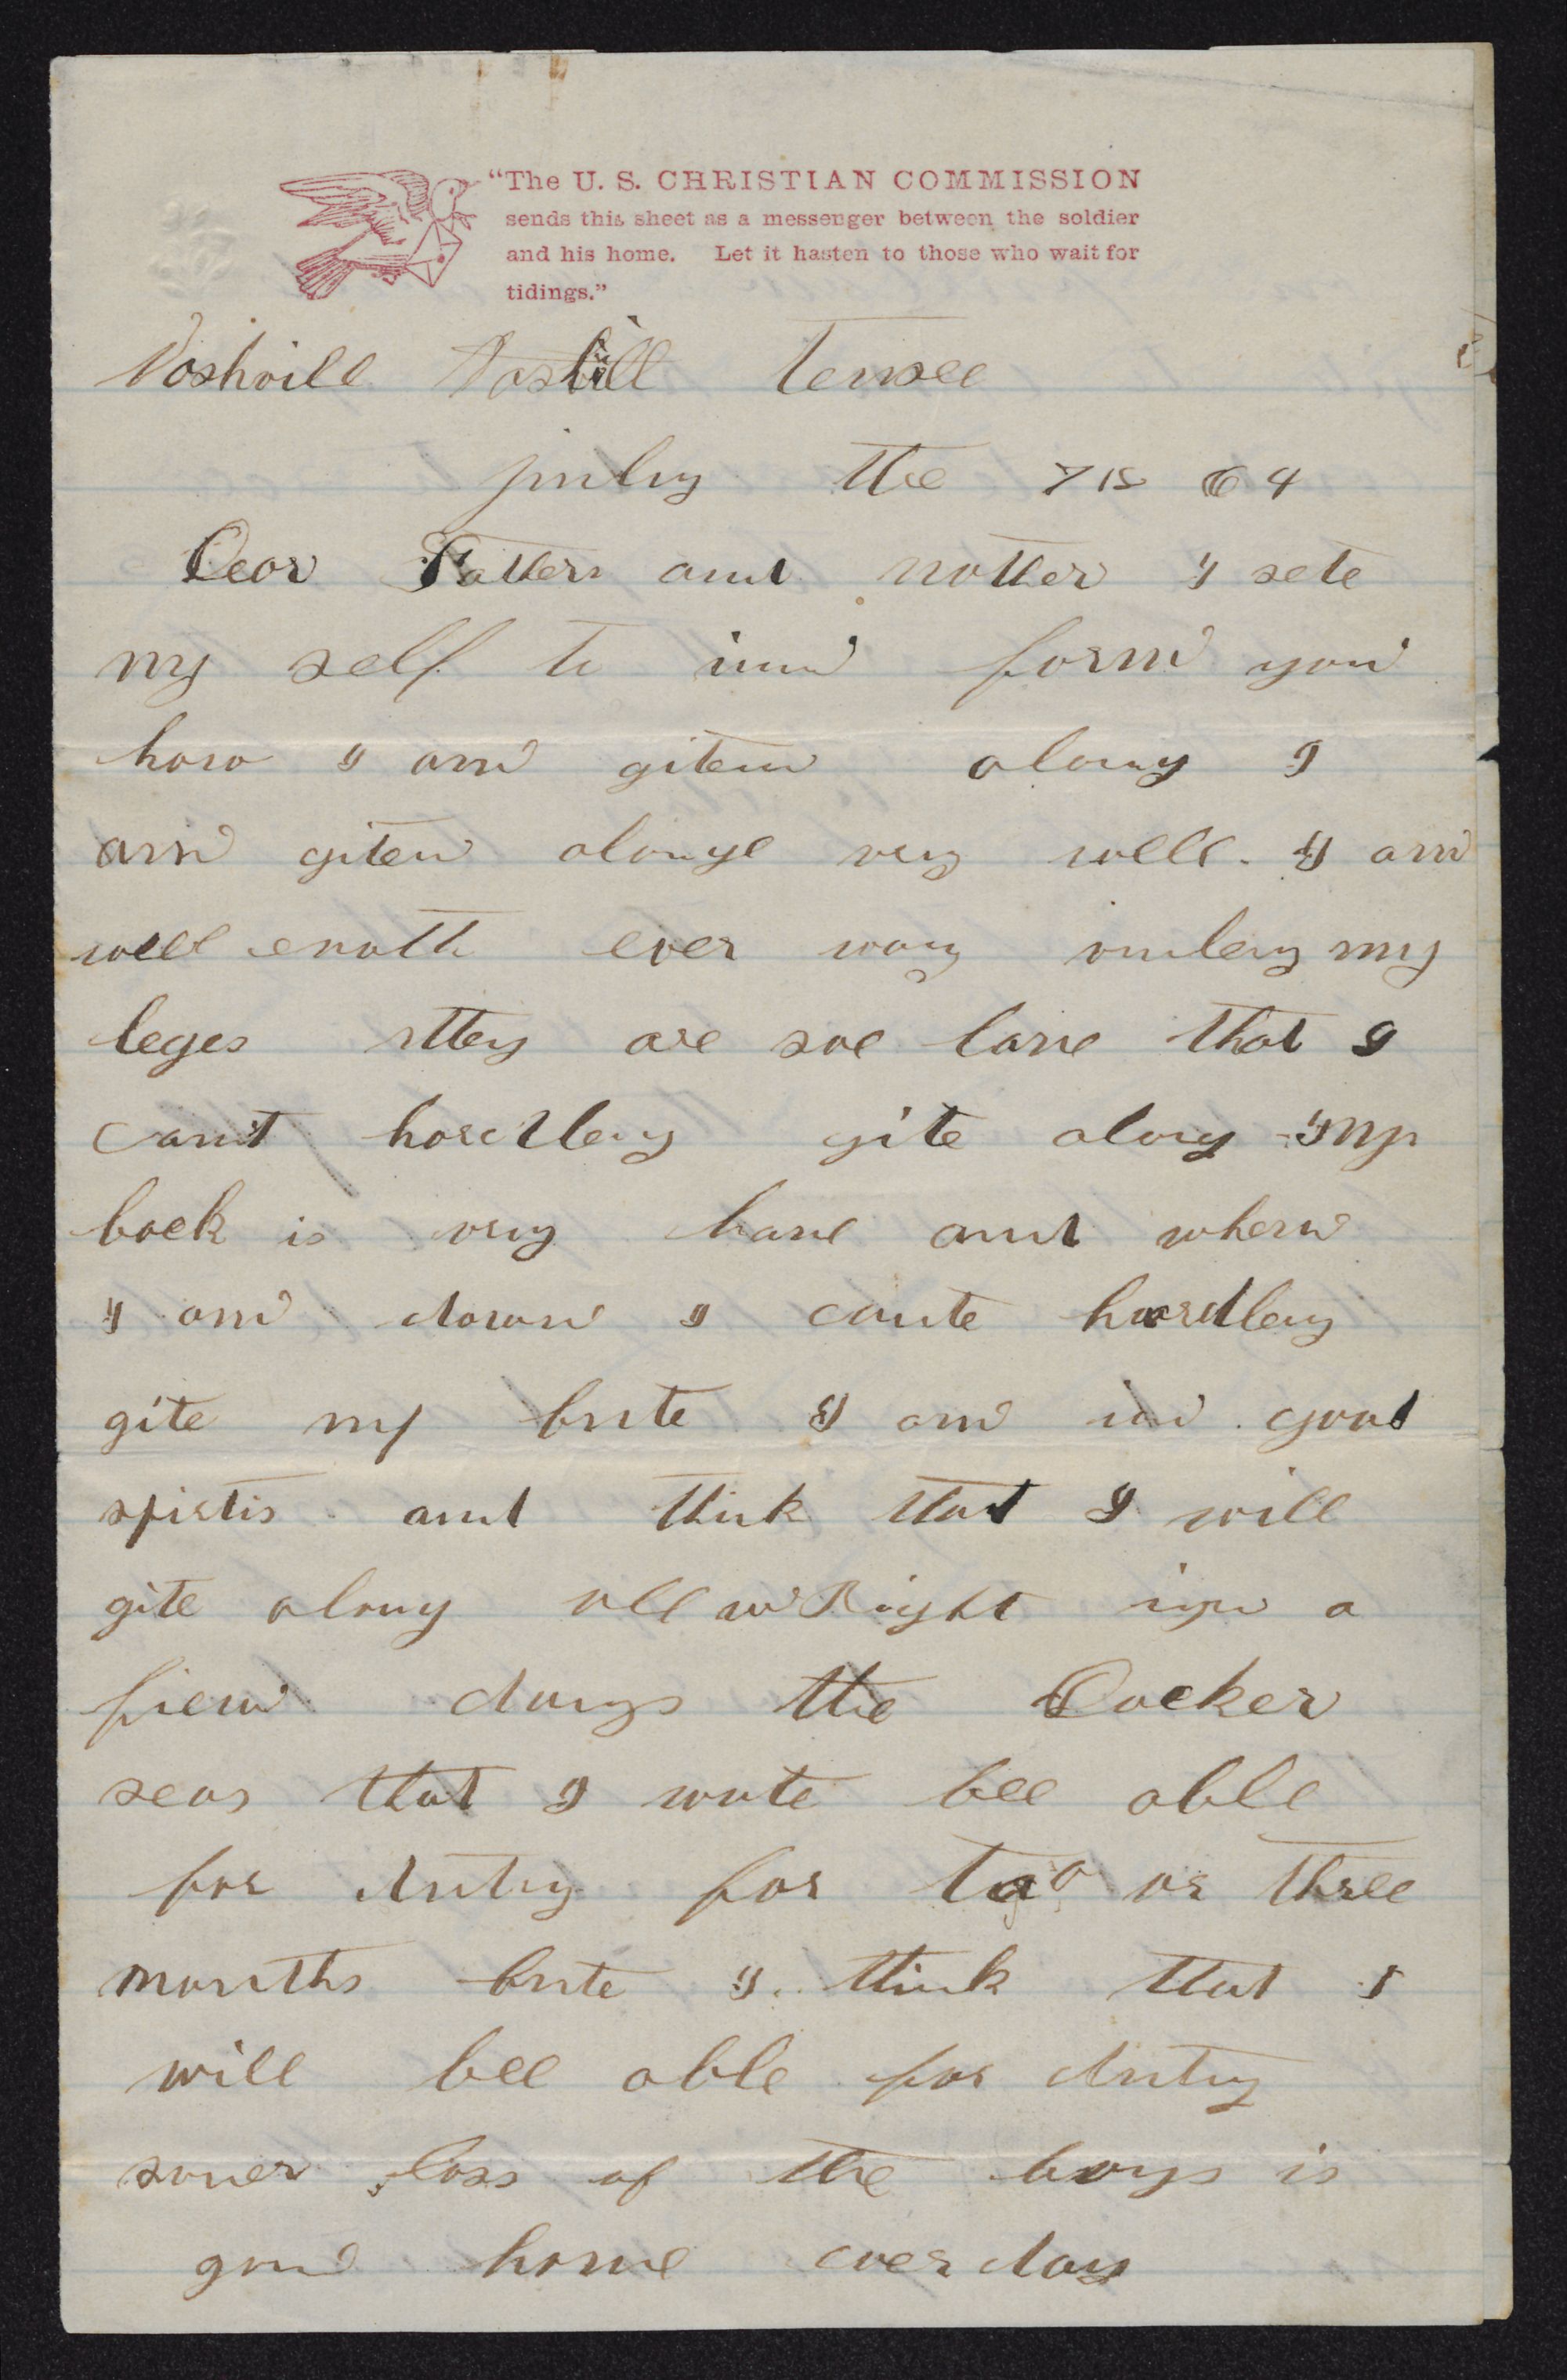 “The U. S. CHRISTIAN COMMISSION
sends this sheet as a messenger between the soldier
and his home. Let it hasten to those who wait for
tidings.”
Noshvill Tennsee
july the 64
Dear Father and mother I sete
my self to inn form you
how I am giten along I
am giten alonge very well. I am
well enoth ever way my
leges they are soe lame that I
cant hardley gite along my
back is very lame and when
I am down I cante hardley
gite my bute I am in good
spirtis and think that I will
gite along all wright in a
fiew days the Docker
seas that I wute bee able
for dutey for two or three
months bute I think that I
will bee able for dutey
soner of the boys is
gone home ever day